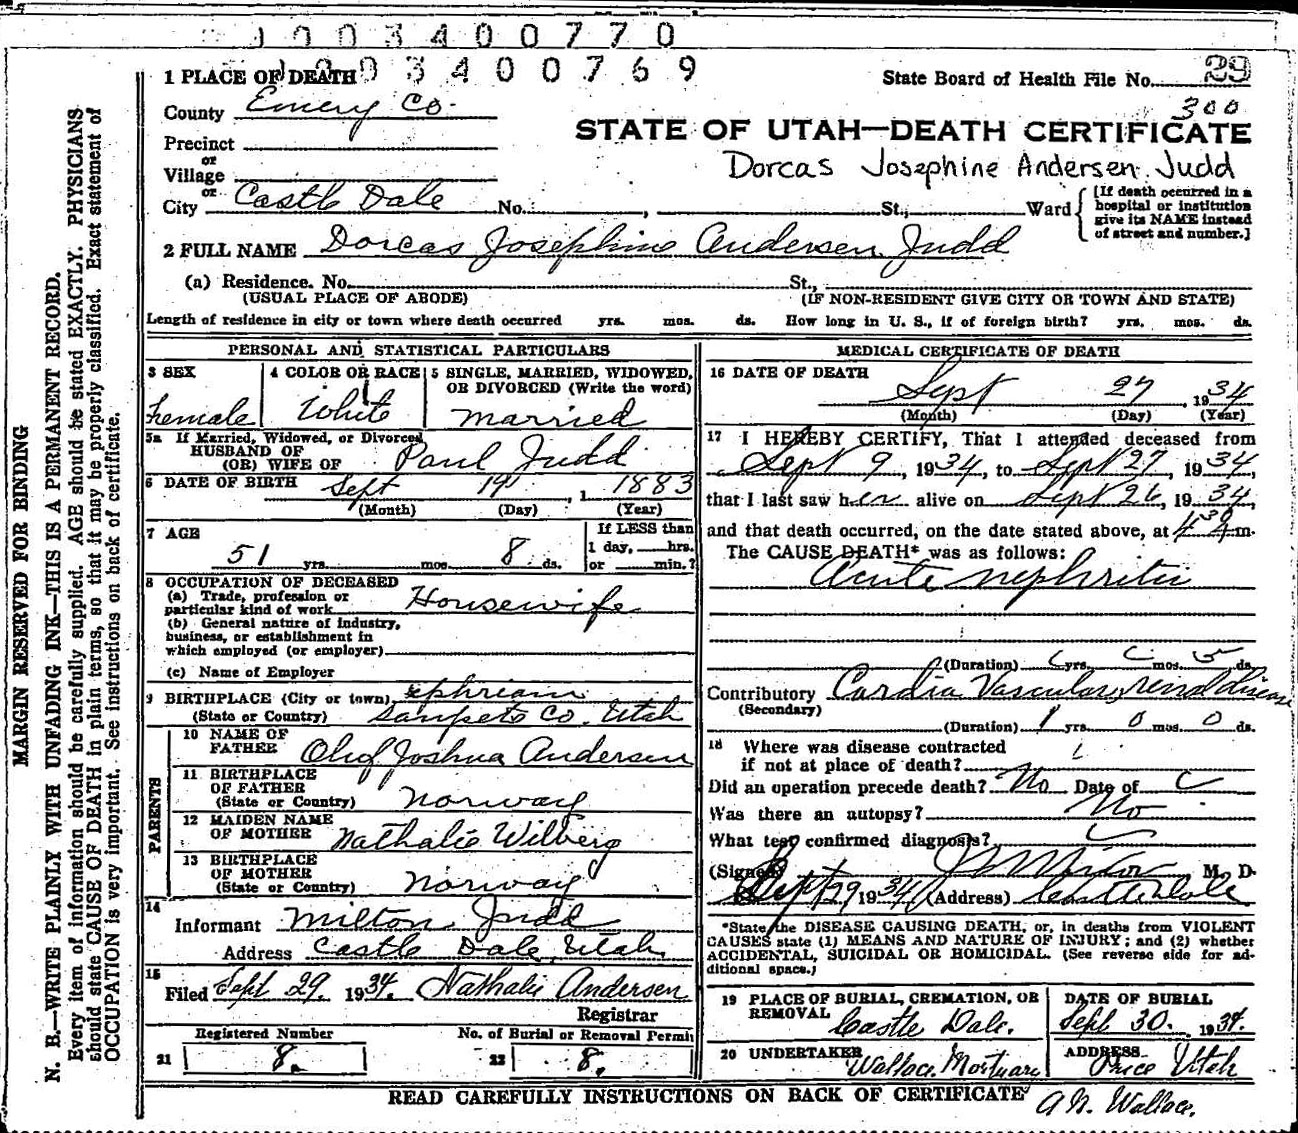 1003400770
1003400769
1 PLACE OF DEATH
State Board of Health File No. 29
300
County Emery Co.
STATE OF UTAH—DEATH CERTIFICATE
Precinct
or
Village
Dorcas Josephine Andersen Judd
or
City Castle Dale No. , St., Ward
[If death occurred in a
hospital or institution
give its NAME instead
of street and number.]
2 FULL NAME Dorcas Josephine Andersen Judd
(a) Residence. No. St.,
(USUAL PLACE OF ABODE) (IF NON-RESIDENT GIVE CITY OR TOWN AND STATE)
Length of residence in city or town where death occurred yrs. mos. ds. How long in U. S., if of foreign birth? yrs. mos. ds.
PERSONAL AND STATISTICAL PARTICULARS
3 SEX 4 COLOR OR RACE 5 SINGLE, MARRIED, WIDOWED,
OR DIVORCED (Write the word)
Female White married
5a If Married, Widowed, or Divorced
HUSBAND OF
(OR) WIFE OF Paul Judd
6 DATE OF BIRTH Sept 19 , 1 1883
(Month) (Day) (Year)
7 AGE
51 yrs. mos. 8 ds.
If LESS than
1 day, hrs.
or min.?
8 OCCUPATION OF DECEASED
(a) Trade, profession or
particular kind of work Housewife
(b) General nature of industry,
business, or establishment in
which employed (or employer)
(c) Name of Employer
9 BIRTHPLACE (City or town) ephriam
(State or Country) Sanpete Co. Utah
PARENTS
10 NAME OF
FATHER Oluf Joshua Andersen
11 BIRTHPLACE
OF FATHER
(State or Country) Norway
12 MAIDEN NAME
OF MOTHER Nathalie Wilberg
13 BIRTHPLACE
OF MOTHER
(State or Country) Norway
14
Informant Milton Judd
Address Castle Dale, Utah.
15
Filed Sept 29. 1934. Nathalie Andersen
Registrar
Registered Number No. of Burial or Removal Permit
21 8. 22 8.
MEDICAL CERTIFICATE OF DEATH
16 DATE OF DEATH
Sept 27 , 1934
(Month) (Day) (Year)
17 I HEREBY CERTIFY, That I attended deceased from
Sept 9 , 1934, to Sept 27 , 1934,
that I last saw her alive on Sept 26, 1934,
and that death occurred, on the date stated above, at m.
The CAUSE DEATH* was as follows:
Acute nephritis
(Duration) yrs. mos. 5 ds.
Contributory Cardia Vascular, renal disease
(Secondary)
(Duration) 1 yrs. 0 mos. 0 ds.
18 Where was disease contracted
if not at place of death?
Did an operation precede death? No Date of
Was there an autopsy? No
What test confirmed diagnosis?
(Signed) M. D.
Sept 29 1934 (Address) Castle Dale
*State the DISEASE CAUSING DEATH, or, in deaths from VIOLENT
CAUSES state (1) MEANS AND NATURE OF INJURY; and (2) whether
ACCIDENTAL, SUICIDAL OR HOMICIDAL. (See reverse side for ad-
ditional space.)
19 PLACE OF BURIAL, CREMATION, OR
REMOVAL Castle Dale.
DATE OF BURIAL
Sept 30. , 1934.
20 UNDERTAKER
Wallace Mortuary
ADDRESS
Price Utah
READ CAREFULLY INSTRUCTIONS ON BACK OF CERTIFICATE
A N. Wallace.
MARGIN RESERVED FOR BINDING
N. B.—WRITE PLAINLY WITH UNFADING INK—THIS IS A PERMANENT RECORD.
Every item of information should be carefully supplied. AGE should be stated EXACTLY. PHYSICIANS
should state CAUSE OF DEATH in plain terms, so that it may be properly classified. Exact statement of
OCCUPATION is very important. See instructions on back of certificate.